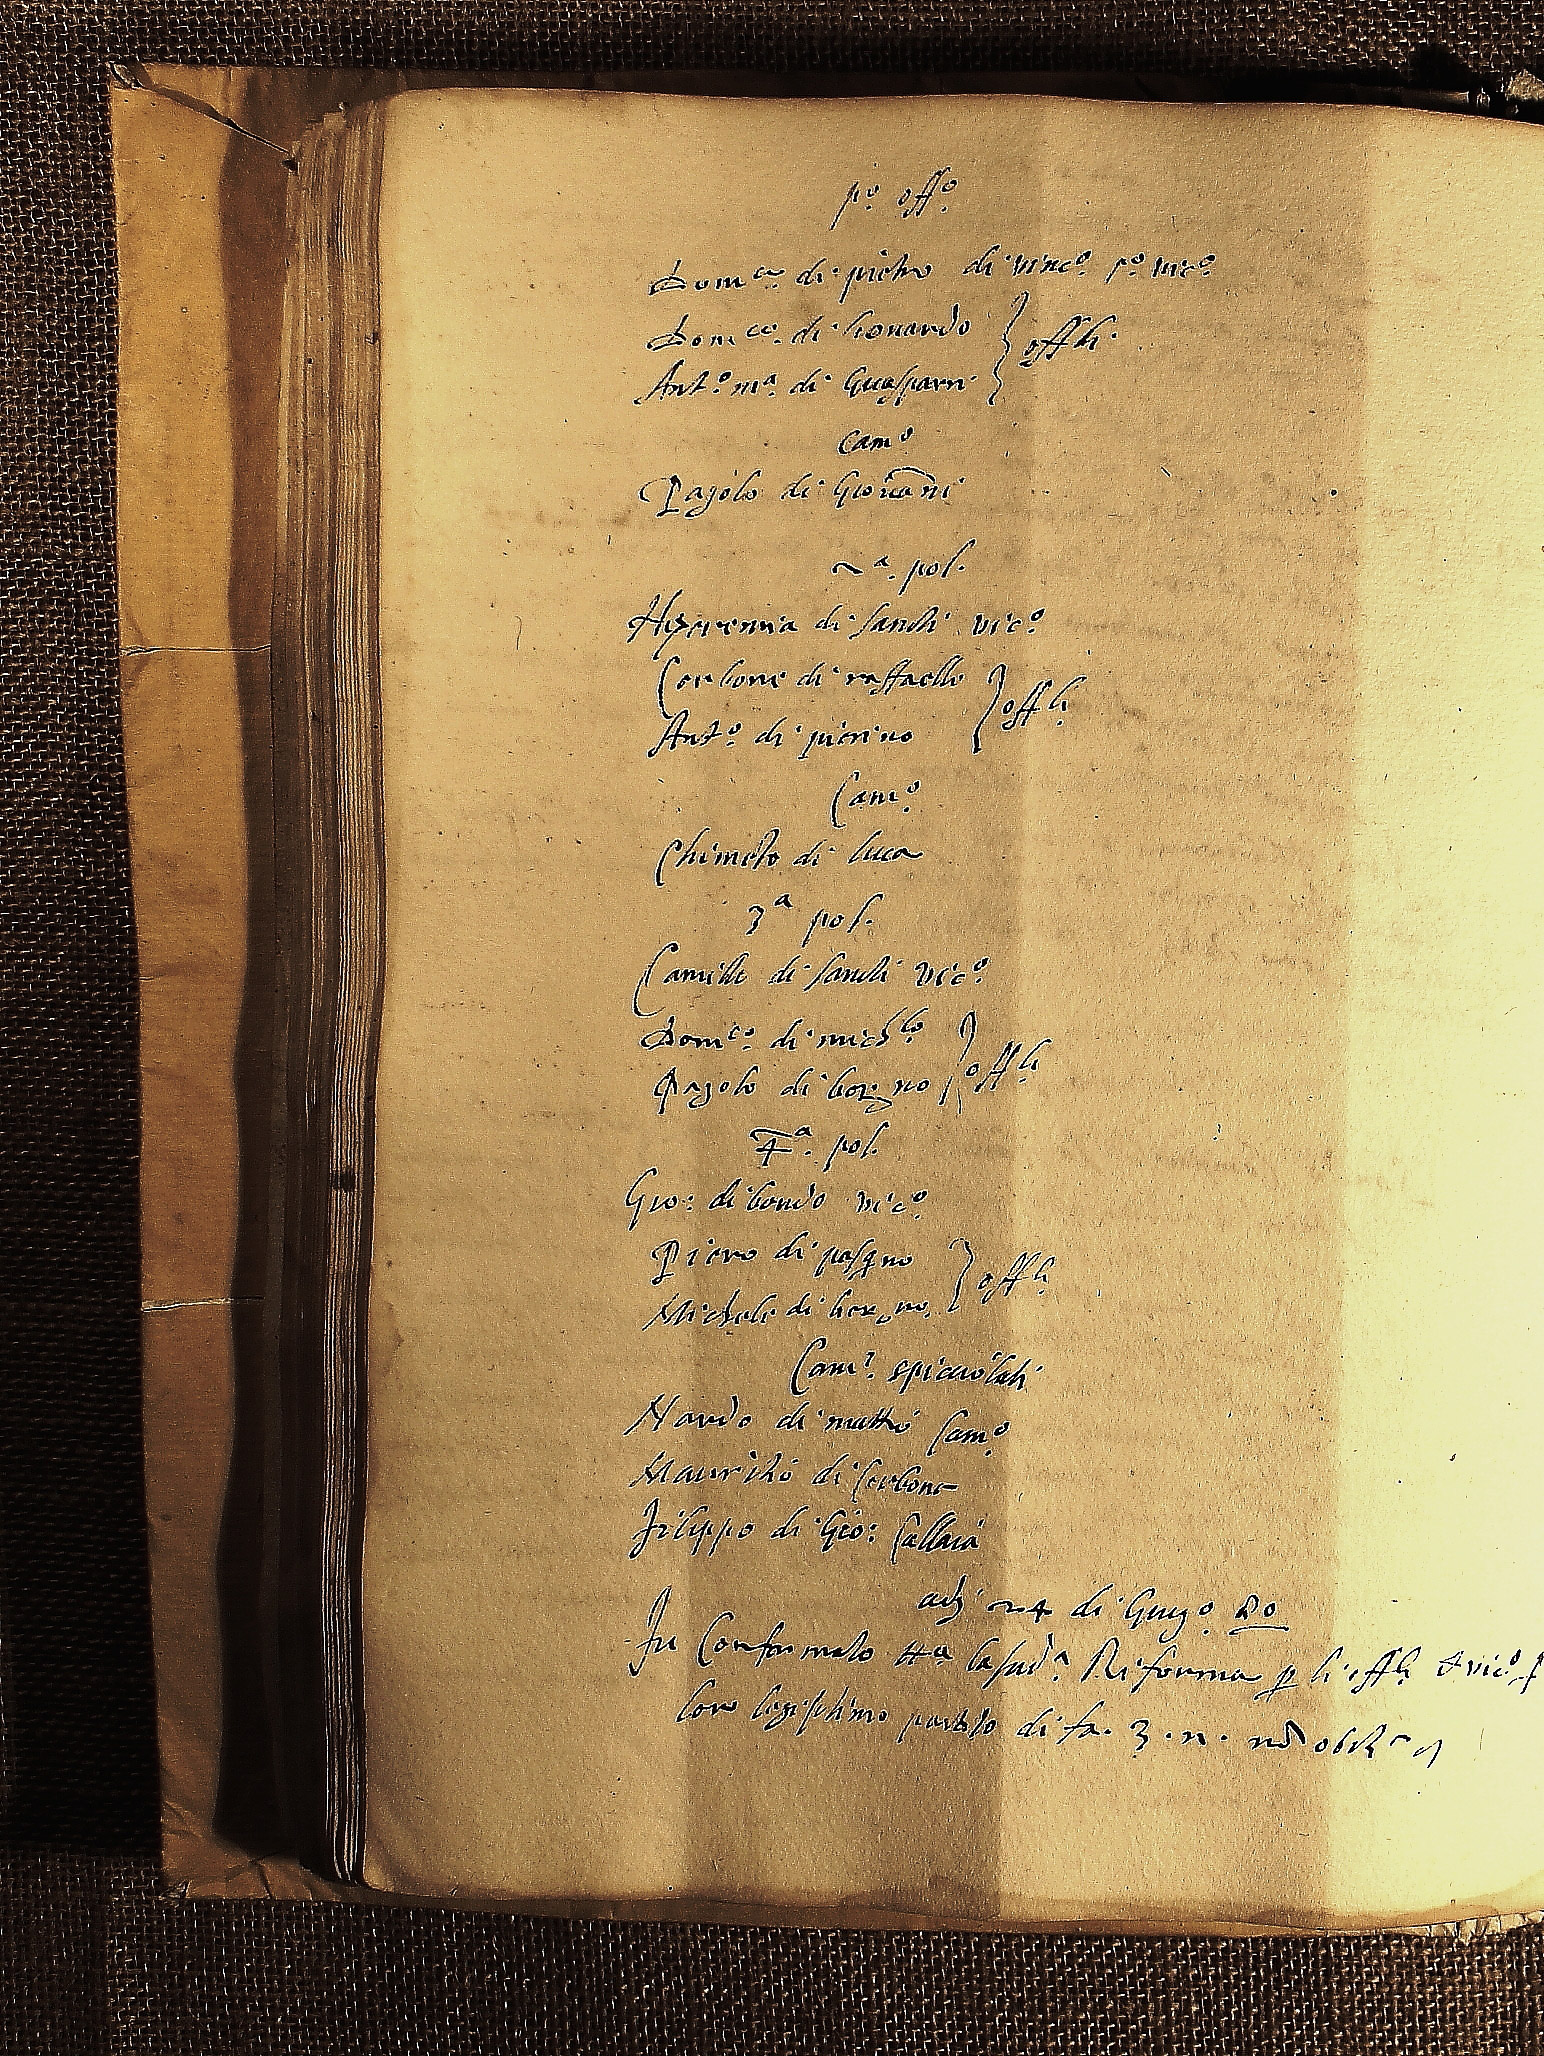 p.º off.º
Dom.co di pietro di vinc.º p.º vic.º
Dom.co di lionardo
Ant.º m.ª di Guasparri } offli.
Cam.º
Pagolo di Giovāni
2.ª pol.
Hyeremia di Santi vic.º
Cerbone di raffaello
Ant.º di pierino } offli.
Cam.º
Chimeto di luca
3ª pol.
Camillo di Santi vic.º
Dom.co di mich.lo
Pagolo di } offli
4.ª pol.
Gio: di bondo vic.º
Piero di pasq.no
Michele di } offli
Cam.ⁱ
Nardo di matteo Cam.º
Mauritio di Cerbone
Filippo di Gio:
adj 24 di Giug.º
Fu Confermato la sud.ª Riforma p li offli e vic.º p
loro legiptimo partito di fa. 3. n.